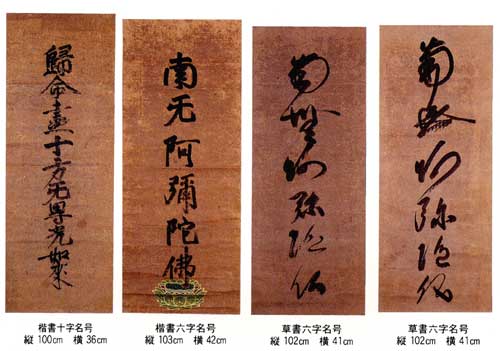 歸命盡十方无㝵光如来
南无阿彌陀佛
南無阿弥陀仏
南無阿弥陀仏
楷書十字名号
縦 100cm 横 36cm
楷書六字名号
縦 103cm 横 42cm
草書六字名号
縦 102cm 横 41cm
草書六字名号
縦 102cm 横 41cm